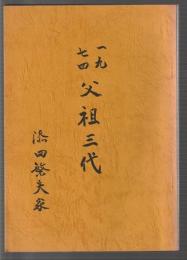 一九七四
父祖三代
添田繁夫家